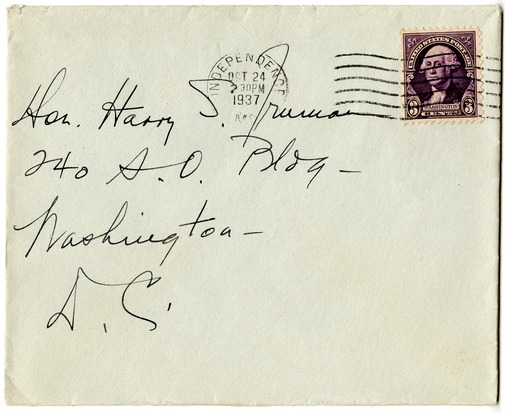 UNITED STATES POSTAGE
3 WASHINGTON 3
INDEPENDENCE
OCT 24
2 30PM
1937
MO
Hon. Harry S. Truman
240 S. O. Bldg -
Washington -
D. C.